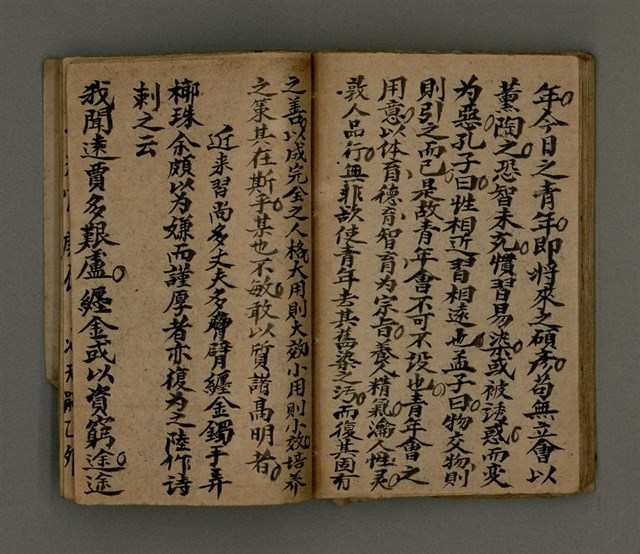 年今日之青年即將來之碩彥苟無立會以
薰陶之恐智未充慣習易染或被誘惑而變
为惡孔子曰性相近習相遠也孟子曰物交物則
則引之而已是故青年會不可不設也青年會之
用意以体育德育智育为宗旨養人精氣瀹人性灵
敦人品行無非欲使青年去其舊染之污而復其固有
之善以成完全之人格大用則大效小用則小效培养
之策其在斯乎某也不敏敢以質諸高明者
近来習尚多丈夫多臂纏金鐲手弄
椰珠余頗以为嫌而謹厚者亦復为之陸作詩
刺之云
我聞遠賈多艱虞纏金或以資窮途途